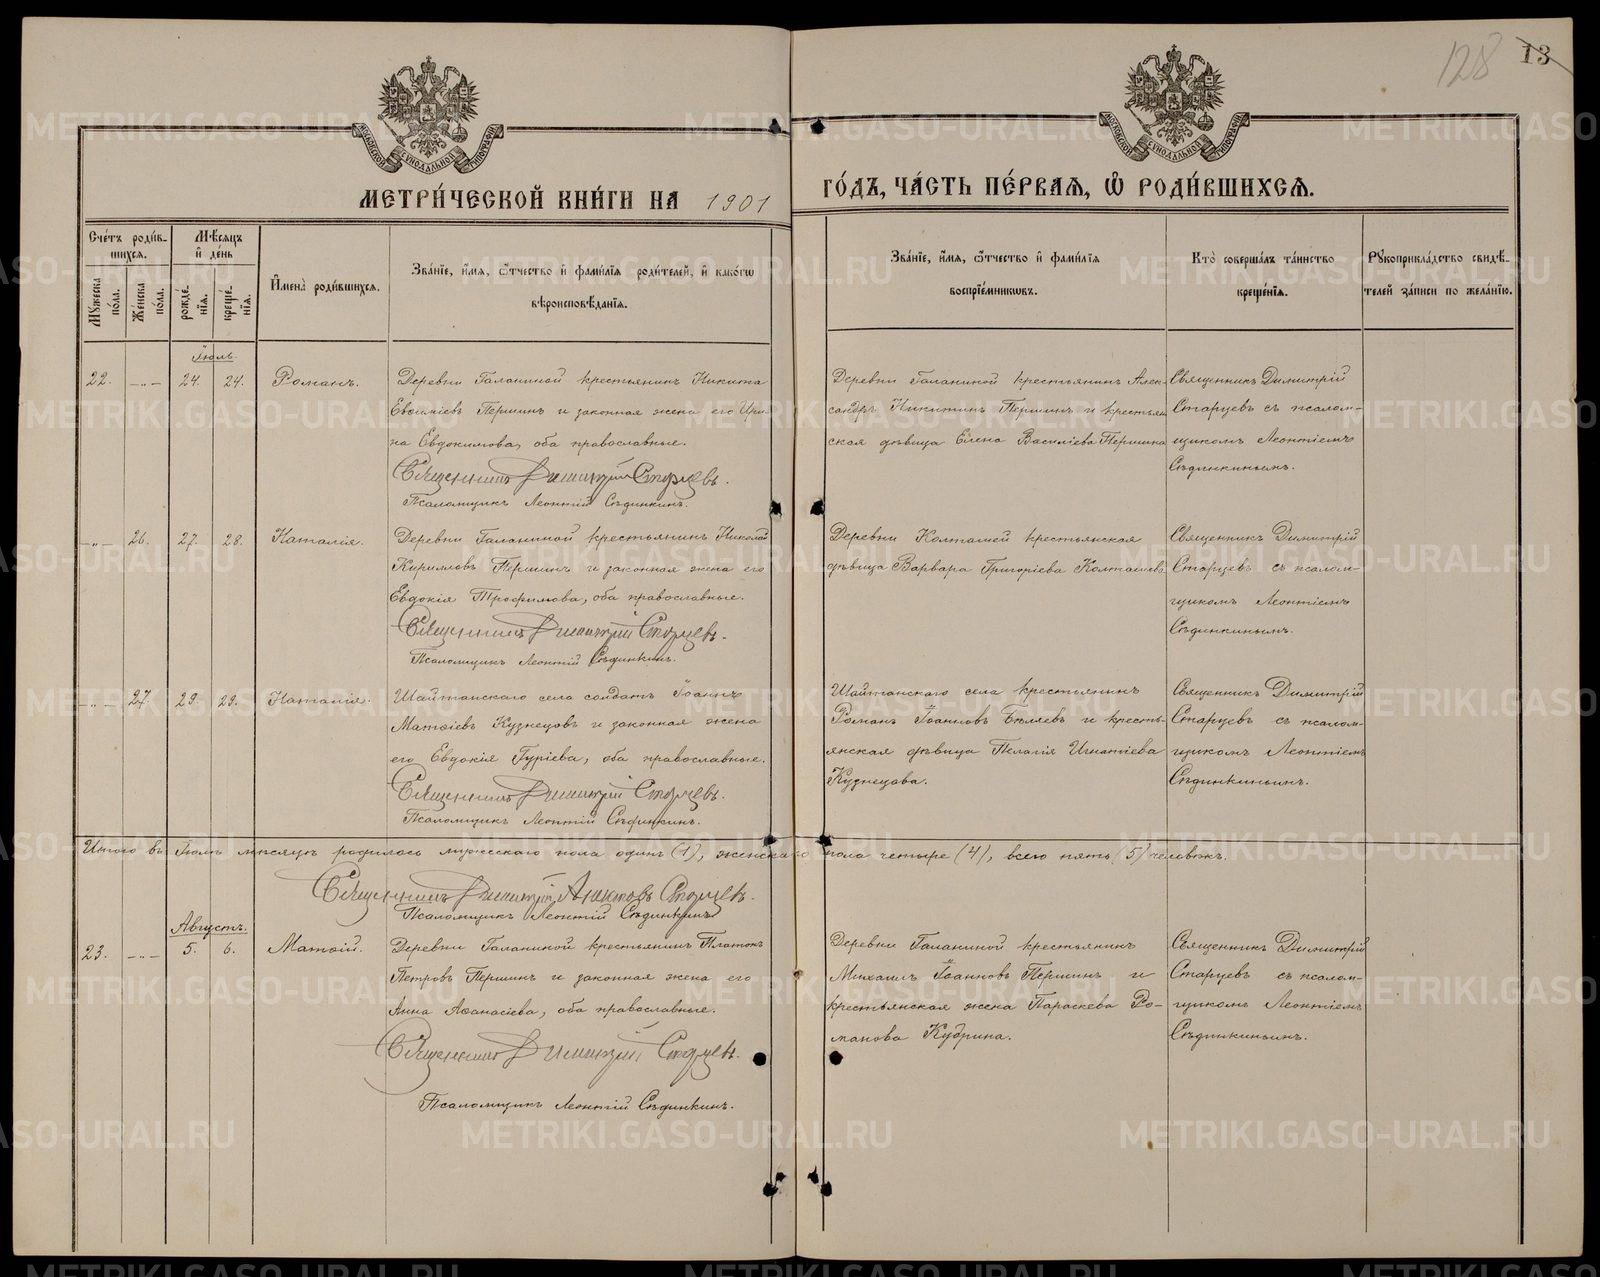 128
13
МОСКОВСКОЙ СѴНОДАЛЬНОЙ ТИПОГРАФІИ
МОСКОВСКОЙ СѴНОДАЛЬНОЙ ТИПОГРАФІИ
МЕТРИ́ЧЕСКОЙ КНИ́ГИ НА 1901 ГО́ДЪ, ЧА́СТЬ ПЕ́РВАѦ, Ѽ РОДИ́ВШИХСѦ.
Счётъ роди́в-
шихсѧ.
Мꙋжеска по́ла.
Же́нска по́ла.
Мѣ́сѧцъ
и҆ де́нь
рожде́-нїѧ.
креще́-нїѧ.
И҆мена̀ роди́вшихсѧ.
Зва́нїе, и҆́мѧ, ѻ҆́тчество и҆ фами́лїѧ роди́телей, и҆ како́гѡ
вѣроисповѣ́данїѧ.
Зва́нїе, и҆́мѧ, ѻ҆́тчество и҆ фами́лїѧ
воспрїе́мникѡвъ.
Кто̀ соверша́лъ та́инство
креще́нїѧ.
Рꙋкоприкла́дство свидѣ́-
телей за́писи по жела́нїю.
Іюль.
22. —„— 24. 24. Романъ.
Деревни Галаниной крестьянинъ Никита
Евѳиміевъ Першинъ и законная жена его Ири-
на Евдокимова, оба православные.
Священникъ Димитрій Старцевъ.
Псаломщикъ Леонтій Сѣдинкинъ.
Деревни Галаниной крестьянинъ Алек-
сандръ Никитинъ Першинъ и крестьян
ская дѣвица Елена Василіева Першина
Священникъ Димитрій
Старцевъ съ псалом-
щикомъ Леонтіемъ
Сѣдинкинымъ.
—„— 26. 27. 28. Наталія.
Деревни Галаниной крестьянинъ Николай
Кирилловъ Першинъ и законная жена его
Евдокія Трофимова, оба православные.
Священникъ Димитрій Старцевъ.
Псаломщикъ Леонтій Сѣдинкинъ.
Деревни Колташей крестьянская
дѣвица Варвара Григоріева Колташева
Священникъ Димитрій
Старцевъ съ псалом-
щикомъ Леонтіемъ
Сѣдинкинымъ.
—„— 27. 29. 29. Наталія.
Шайтанскаго села солдатъ Іоаннъ
Матѳіевъ Кузнецовъ и законная жена
его Евдокія Гуріева, оба православные.
Священникъ Димитрій Старцевъ.
Псаломщикъ Леонтій Сѣдинкинъ.
Шайтанскаго села крестьянинъ
Романъ Іоанновъ Бѣляевъ и кресть-
янская дѣвица Пелагія Игнатіева
Кузнецова.
Священникъ Димитрій
Старцевъ съ псалом-
щикомъ Леонтіемъ
Сѣдинкинымъ.
Итого въ Іюлѣ мѣсяцѣ родилось мужескаго пола одинъ (1), женскаго пола четыре (4), всего пять (5) человѣкъ.
Священникъ Димитрій Старцевъ.
Псаломщикъ Леонтій Сѣдинкинъ
Августъ.
23. —„— 5. 6. Матѳій.
Деревни Галаниной крестьянинъ Платонъ
Петровъ Першинъ и законная жена его
Анна Аѳанасіева, оба православные.
Священникъ Димитрій Старцевъ.
Псаломщикъ Леонтій Сѣдинкинъ.
Деревни Галаниной крестьянинъ
Михаилъ Іоанновъ Першинъ и
крестьянская жена Параскева Ро-
манова Кубрина.
Священникъ Димитрій
Старцевъ съ псалом-
щикомъ Леонтіемъ
Сѣдинкинымъ.
METRIKI.GASO-URAL.RU